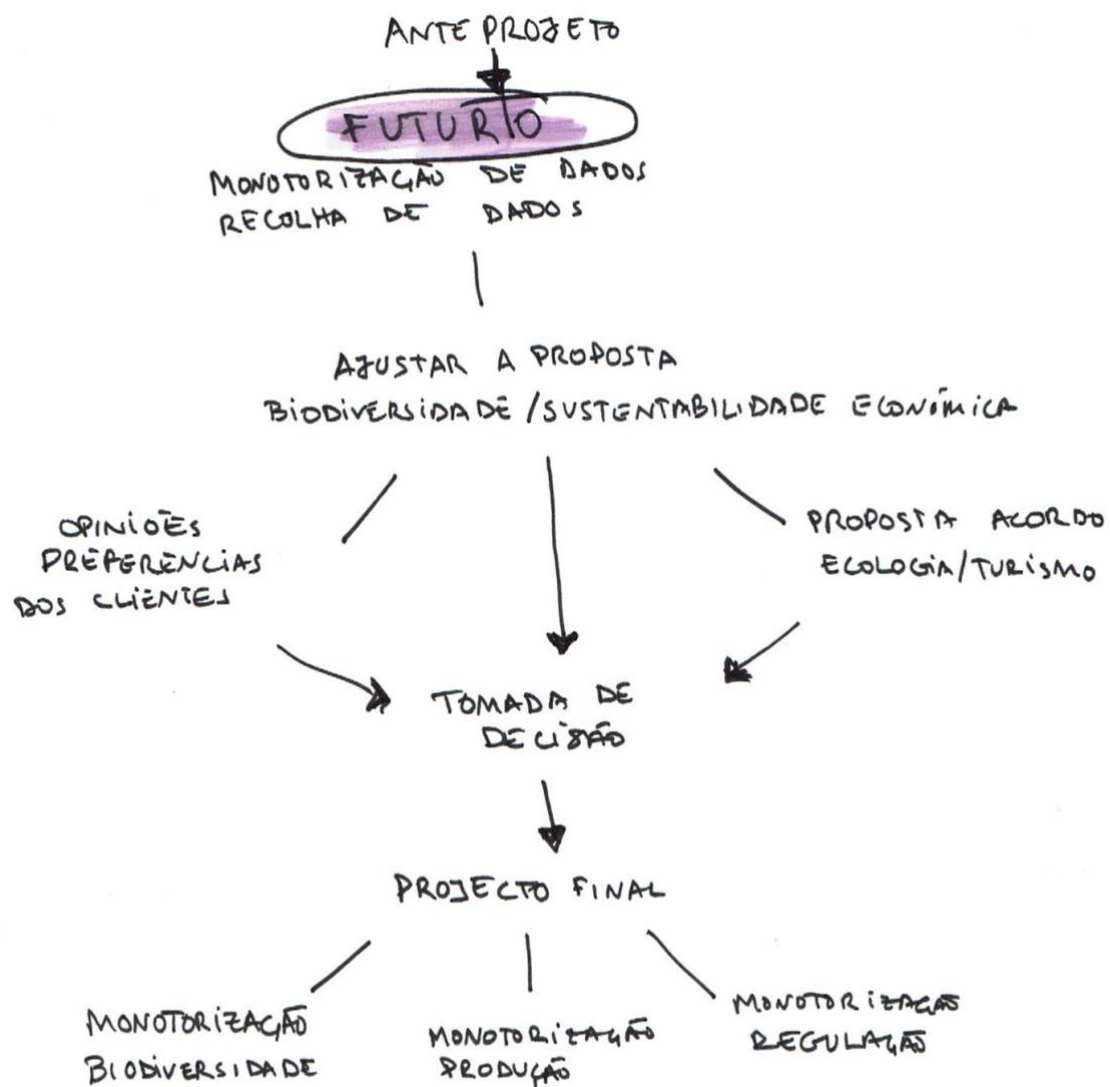 ANTE PROJETO
FUTURIO
MONOTORIZAÇÃO DE DADOS
RECOLHA DE DADOS
AJUSTAR A PROPOSTA
BIODIVERSIDADE/SUSTENTABILIDADE ECONÓMICA
OPINIOÊS
PREFERÊNCIAS
DOS CLIENTES
PROPOSTA ACORDO
ECOLOGIA/TURISMO
TOMADA DE
DECISÃO
PROJECTO FINAL
MONOTORIZAÇÃO
BIODIVERSIDADE
MONOTORIZAÇÃO
PRODUÇÃO
MONOTORIZAÇÃO
REGULAÇÃO